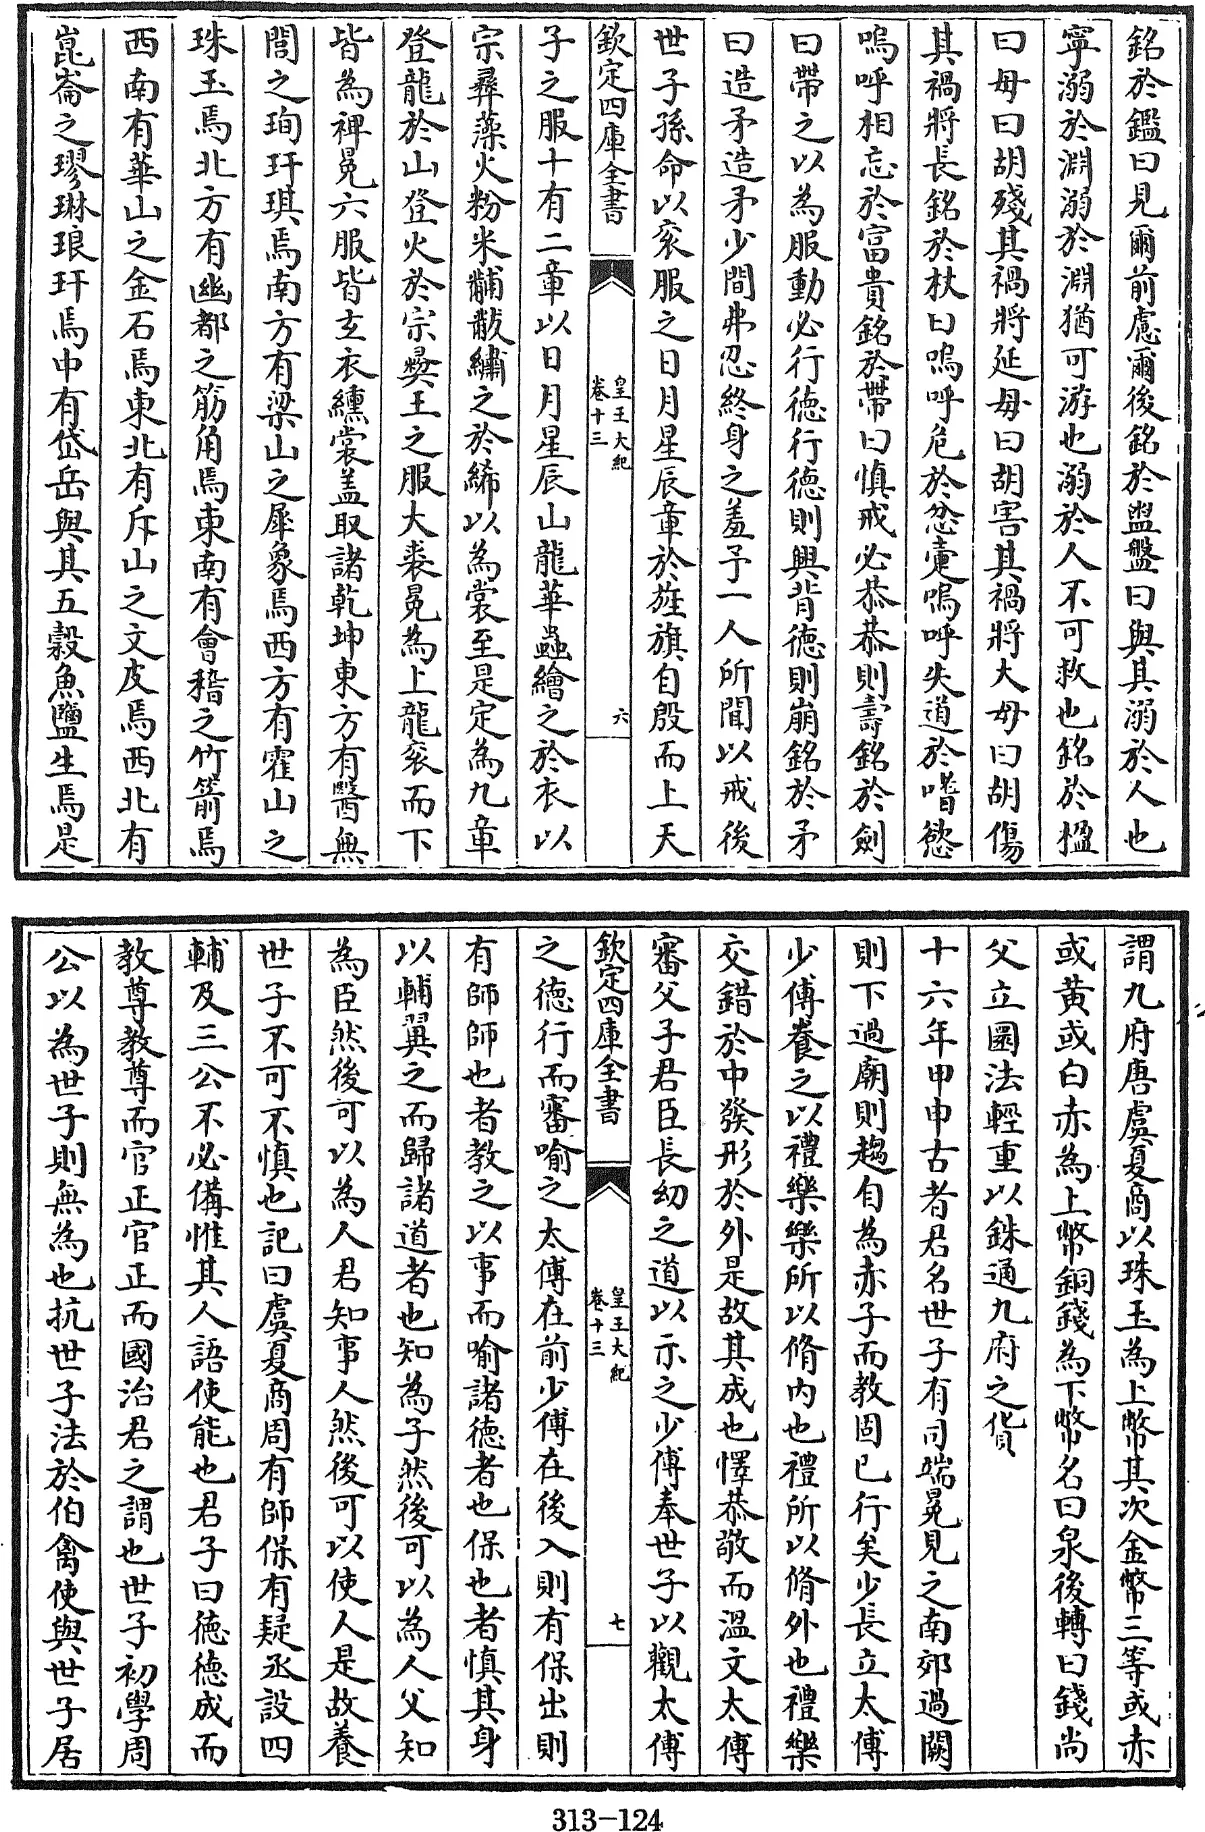 銘於鑑曰見爾前慮爾後銘於盥盤曰與其溺於人也
寧溺於淵溺於淵猶可游也溺於人不可救也銘於楹
曰毋曰胡殘其禍將延毋曰胡害其禍將大毋曰胡傷
其禍將長銘於杖曰嗚呼危於忿疐嗚呼失道於嗜慾
嗚呼相忘於富貴銘於帶曰慎戒必恭恭則壽銘於劍
曰帶之以為服動必行徳行徳則興背徳則崩銘於矛
曰造矛造矛少間弗忍終身之羞予一人所聞以戒後
世子孫命以衮服之日月星辰章於旌旗自殷而上天
欽定四庫全書
皇王大紀
卷十三
六
子之服十有二章以日月星辰山龍華蟲繪之於衣以
宗彞藻火粉米黼黻繡之於絺以為裳至是定為九章
登龍於山登火於宗彞王之服大裘冕為上龍衮而下
皆為裨冕六服皆玄衣纁裳蓋取諸乾坤東方有醫無
閭之珣玗琪焉南方有梁山之犀象焉西方有霍山之
珠玉焉北方有幽都之筋角焉東南有會稽之竹箭焉
西南有華山之金石焉東北有斥山之文皮焉西北有
崑崙之璆琳琅玕焉中有岱岳與其五榖魚鹽生焉是
謂九府唐虞夏商以珠玉為上幣其次金幣三等或赤
或黄或白赤為上幣銅錢為下幣名曰泉後轉曰錢尚
父立圜法輕重以銖通九府之貨
十六年甲申古者君名世子有司端冕見之南郊過闕
則下過廟則趨自為赤子而教固已行矣少長立太傅
少傅養之以禮樂樂所以脩内也禮所以脩外也禮樂
交錯於中發形於外是故其成也懌恭敬而溫文太傅
審父子君臣長幼之道以示之少傅奉世子以觀太傅
欽定四庫全書
皇王大紀
卷十三
七
之徳行而審喻之太傅在前少傅在後入則有保出則
有師師也者教之以事而喻諸徳者也保也者慎其身
以輔翼之而歸諸道者也知為子然後可以為人父知
為臣然後可以為人君知事人然後可以使人是故養
世子不可不慎也記曰虞夏商周有師保有疑丞設四
輔及三公不必備惟其人語使能也君子曰徳徳成而
教尊教尊而官正官正而國治君之謂也世子初學周
公以為世子則無為也抗世子法於伯禽使與世子居
313-124